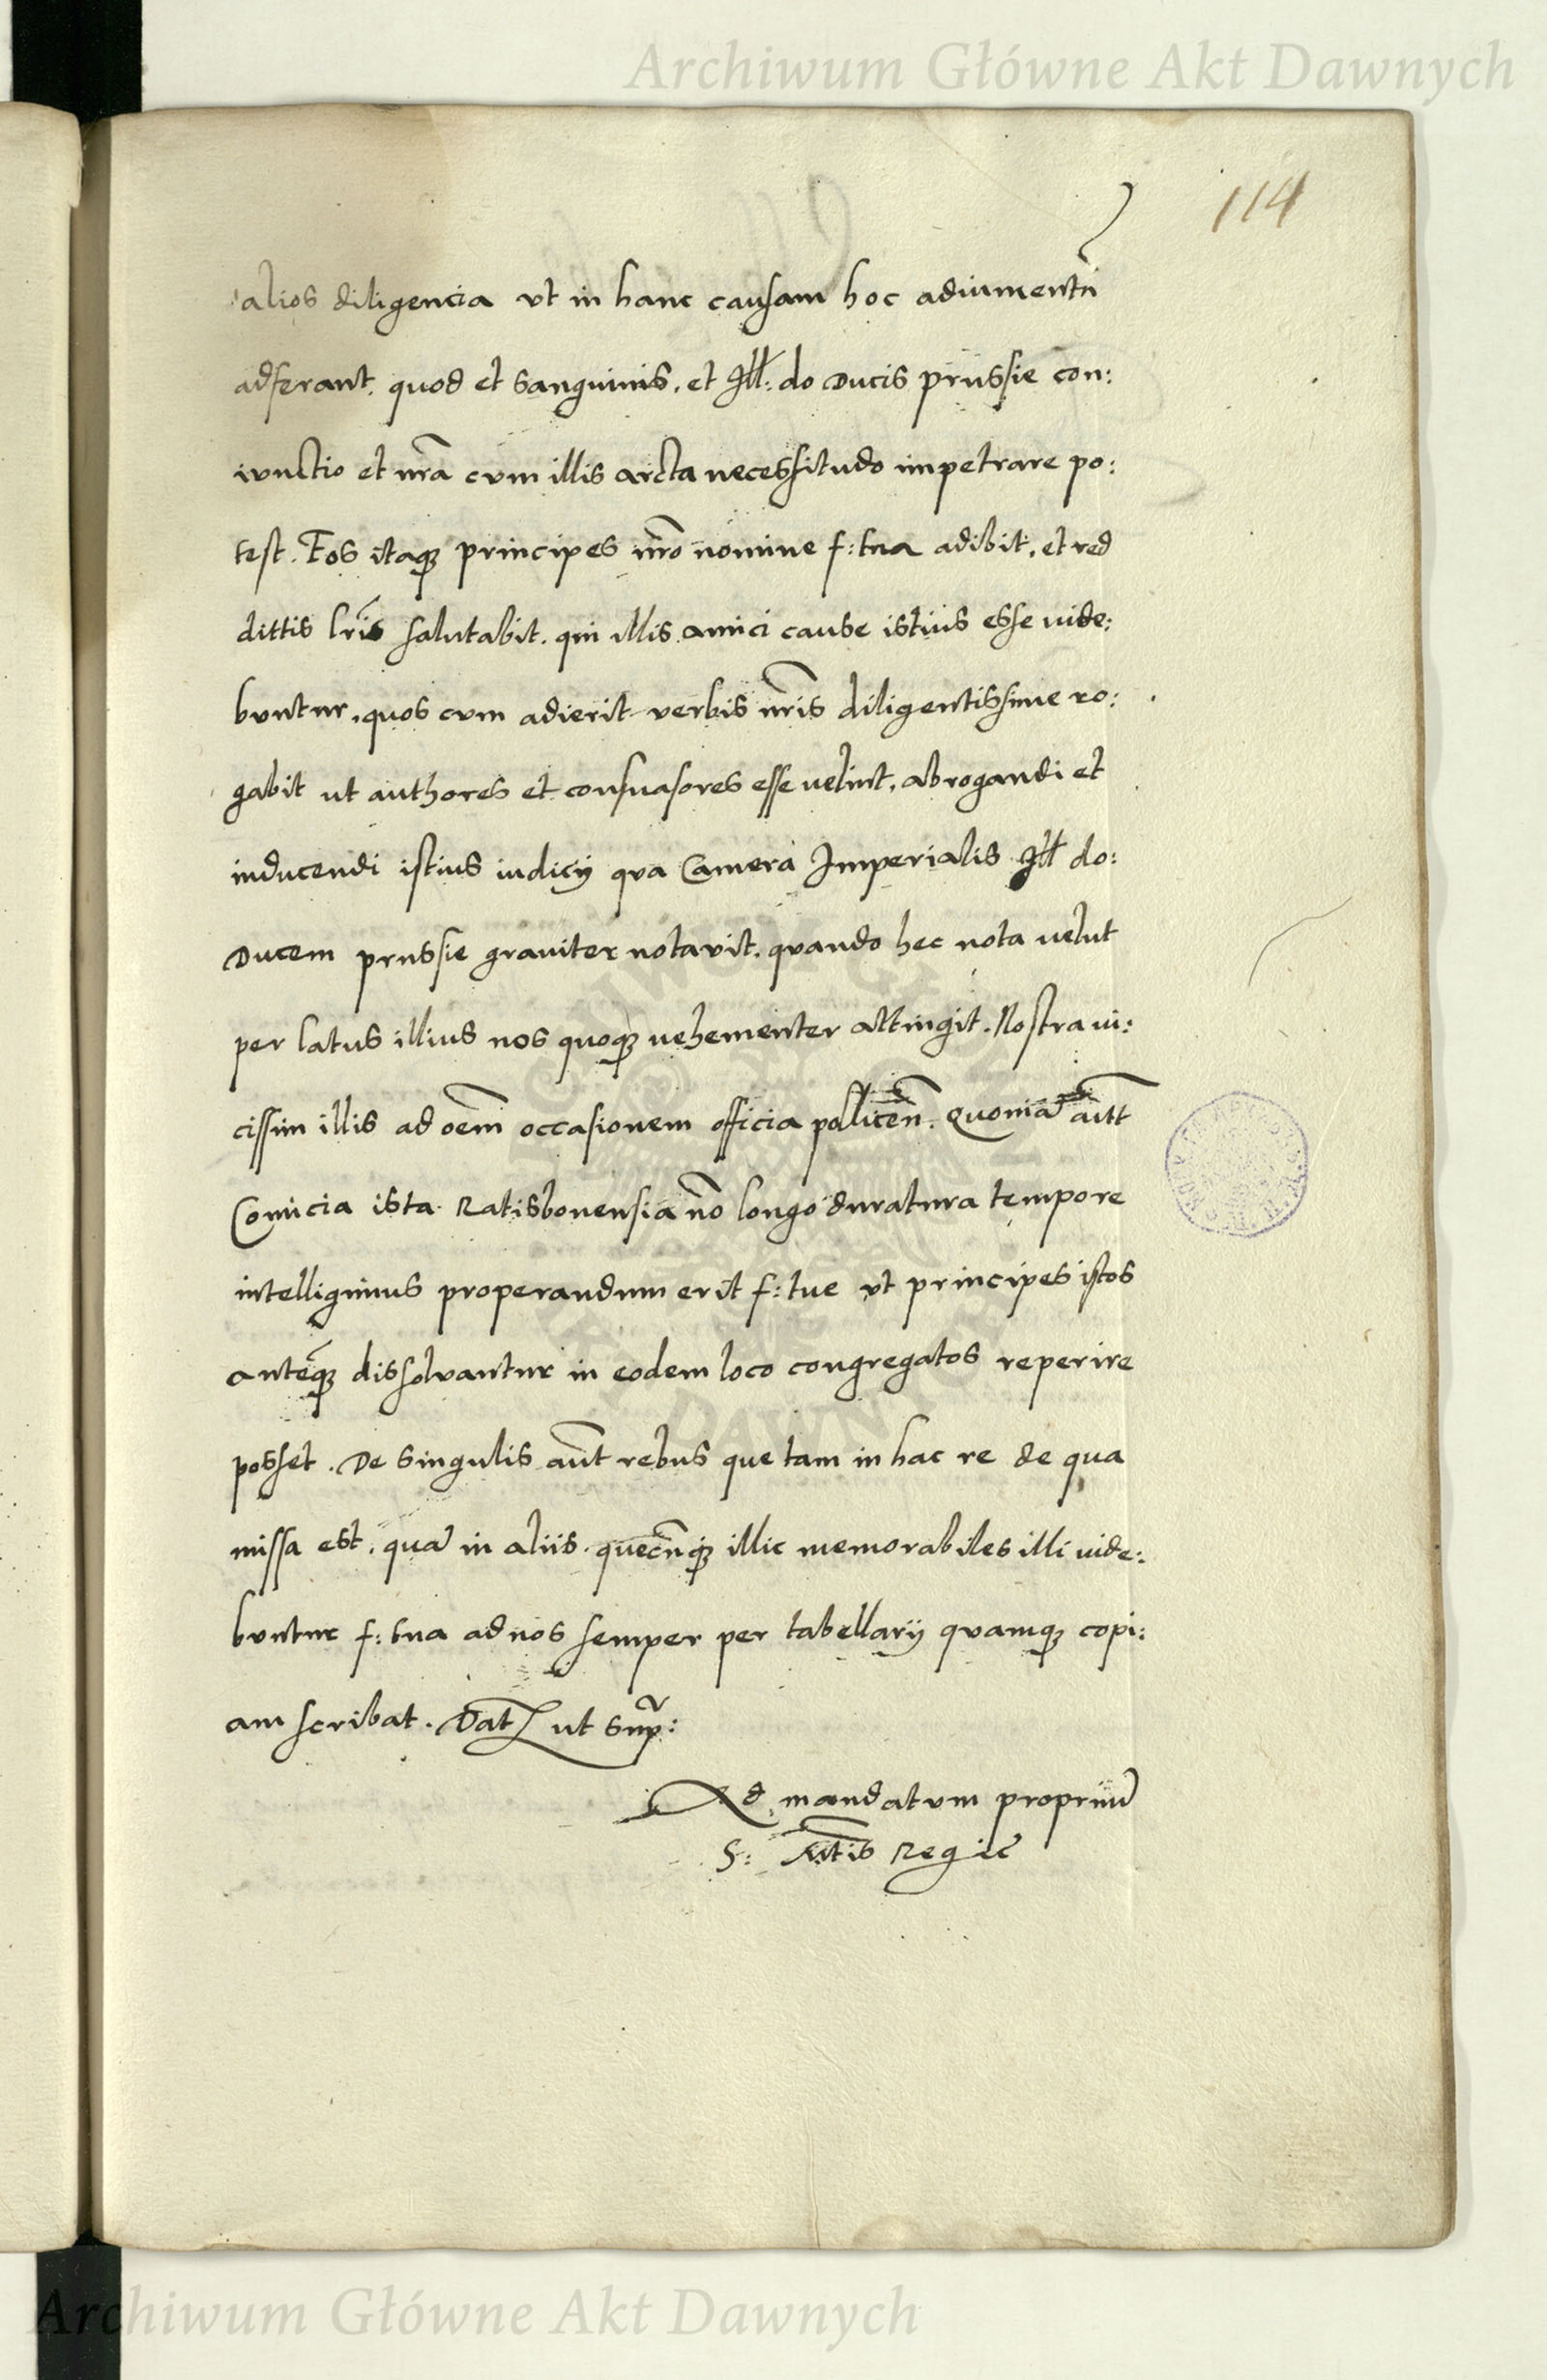 Archiwum Główne Akt Dawnych
114
alios diligencia vt in hanc causam hoc adiumentũ
adferant. quod et sanguinis, et Ill: do Ducis prussie con:
iunctio et nrã cum illis arcta necessitudo impetrare po:
test. Eos itaqȝ principes nrõ nomine f: tua adibit, et red
dittis lrĩs salutabit. qui illis amici cause istius esse uide:
buntur, quos cum adierit verbis nrĩs diligentissime ro:
gabit ut authores et consuasores esse uelint, abrogandi et
inducendi istius iudicij qua Camera Imperialis Ill do:
Ducem prussie grauiter notauit. quando hec nota uelut
per latus illius nos quoqȝ vehementer attingit. Nostra ui:
cissim illis ad oẽm occasionem officia pollicẽn. Quoniã aũt
Comicia ista Ratisbonensia nõ longo duratura tempore
intelligimus properandum erit f: tue vt principes istos
anteq̃ȝ dissoluantur in eodem loco congregatos reperire
posset. De singulis aũt rebus que tam in hac re de qua
missa est, quã in aliis quecũqȝ illic memorabiles illi uide:
buntur f: tua ad nos semper per tabellarij quamqȝ copi:
am scribat. Dat ut sup:
Ad mandatum propriũ
S: Mtis Regiẽ
Archiwum Główne Akt Dawnych